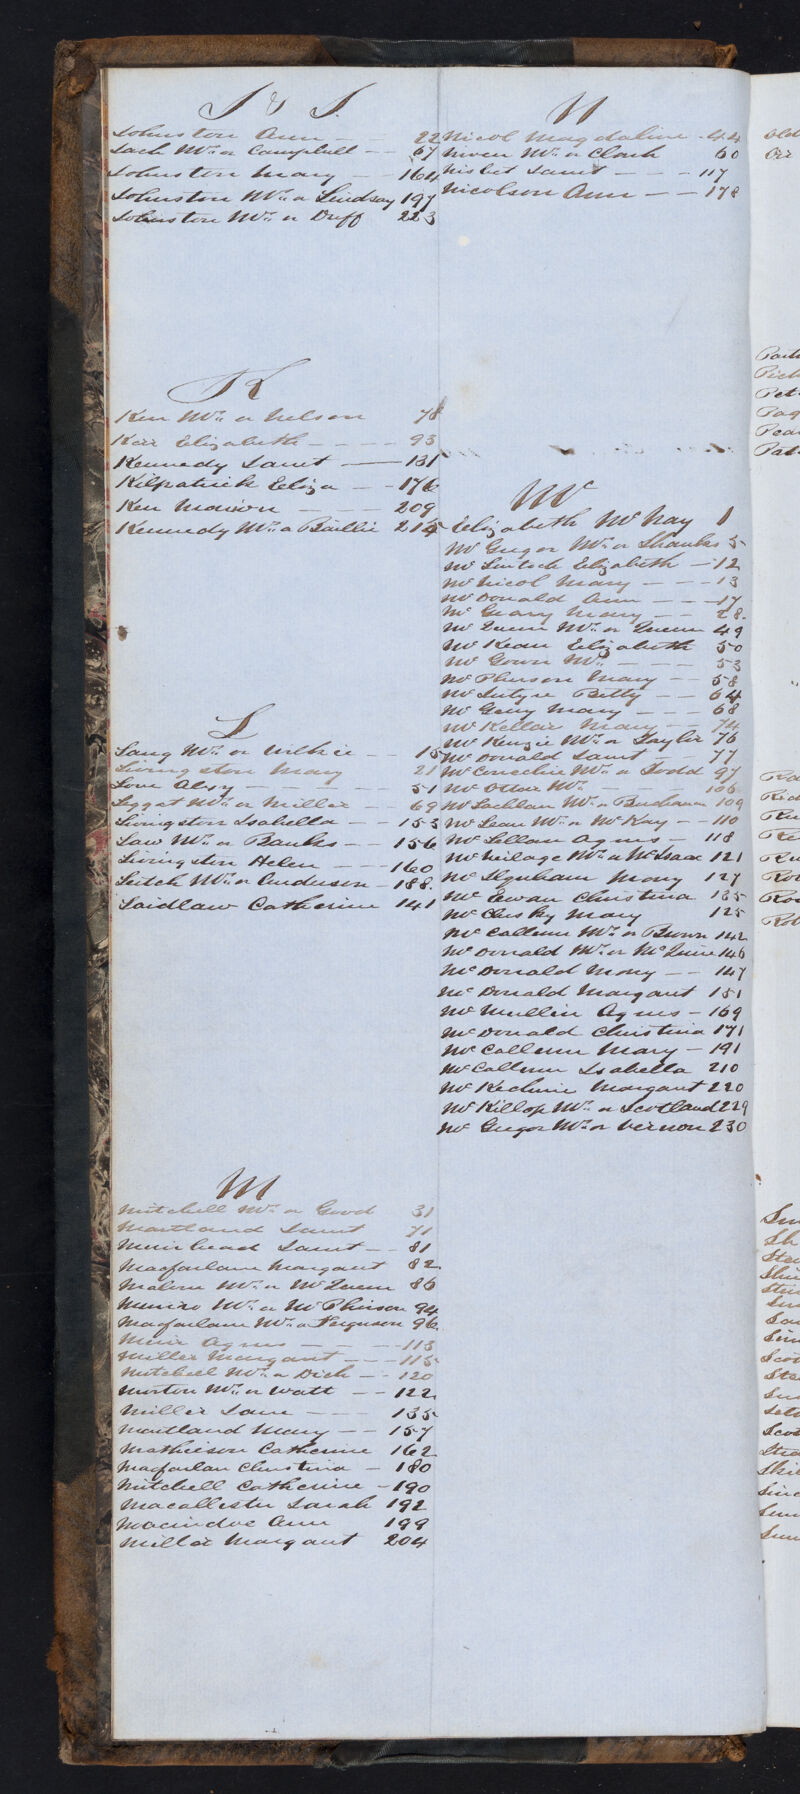 I & J.
Johnston Ann 22
Jack Mrs or Campbell 67
Johnston Mary 164
Johnston Mrs or Lindsay 197
Johnston Mrs or Duff 223
K
Kerr Mrs or Nelson 78
Keir Elizabeth 93
Kennedy Janet 131
Kilpatrick Eliza 176
Kerr Marion 209
Kennedy Mrs or Baillie 215
L
Lang Mrs or Wilkie 15
Livingston Mary 21
Love Alsy 51
Leggat Mrs or Miller 69
Livingston Isabella 153
Law Mrs or Banks 156
Livingston Helen 160
Leitch Mrs or Anderson 188
Laidlaw Catherine 141
M
Mitchell Mrs or Good 31
Maitland Janet 71
Muirhead Janet 81
Macfarlane Margaret 82
Malone Mrs or McQueen 86
Munro Mrs or McPherson 94
Macfarlane Mrs or Ferguson 96
Muir Agnes 113
Miller Margaret 115
Mitchell Mrs or Dick 120
Morton Mrs or Watt 122
Miller Jane 135
Maitland Mary 157
Mathieson Catherine 162
Macfarlan Christina 180
Mitchell Catherine 190
Macallester Sarah 192
Macindoe Ann 199
Miller Margaret 204
N
Nicol Magdaline 44
Niven Mrs or Clark 60
Nisbet Janet 117
Nicolson Ann 178
Mc
Elizabeth McNay 1
McGregor Mrs or Shanks 5
McIntosh Elizabeth 12
McNicol Mary 13
McDonald Ann 17
McGeary Mary 28
McQueen Mrs or Queen 49
McKean Elizabeth 50
McGown Mrs 53
McPherson Mary 58
McIntyre Betty 64
McGeny Mary 68
McKellar Mary 74
McKenzie Mrs or Taylor 76
McDonald Janet 77
McConechie Mrs or Todd 97
Mrs 106
McLachlan Mrs or Buchanan 109
McLean Mrs or McKay 110
McLellan Agnes 118
McNeilage Mrs or McIsaac 121
Mary 127
McEwan Christina 135
McClusky Mary 125
McCallum Mrs or Brown 142
McDonald Mrs or McQueen 146
McDonald Mary 147
McDonald Margaret 151
McMullin Agnes 169
McDonald Christina 171
McCallum Mary 191
McCallum Isabella 210
McKechnie Margaret 220
McKillop Mrs or Scotland 229
McGregor Mrs or Vernon 230